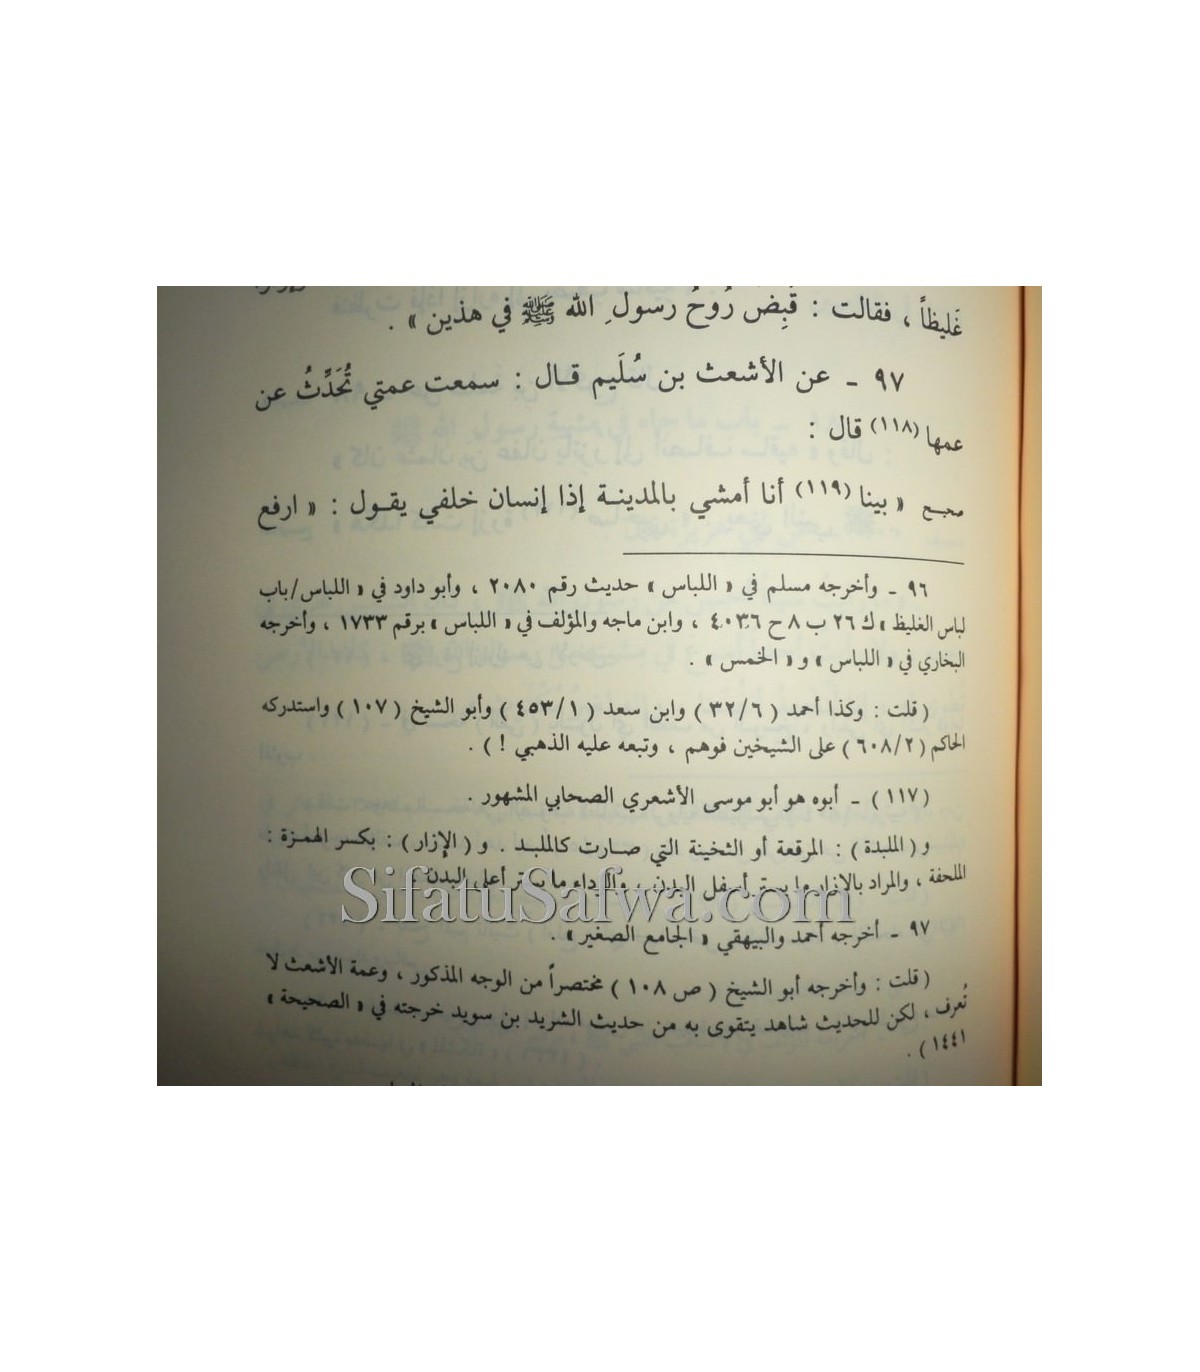 غَليظاً ، فقالت : قُبِضَ رُوحُ رسولِ الله ﷺ في هذين » .
٩٧ ـ عن الأشعث بن سُلَيم قـال : سمعت عمتي تُحَدِّثُ عن
عمها (١١٨) قال :
صحيح « بينا (١١٩) أنا أمشي بالمدينـة إذا إنسان خلفي يقـول : « ارفع
٩٦ ـ وأخرجه مسلم في « اللباس » حديث رقم ٢٠٨٠ ، وأبو داود في « اللباس/باب
لباس الغليظ » ك ٢٦ ب ٨ ح ٤٠٣٦ ، وابن ماجه والمؤلف في « اللباس » برقم ١٧٣٣ ، وأخرجه
البخاري في « اللباس » و « الخمس » .
( قلت : وكذا أحمد ( ٣٢/٦ ) وابن سعد ( ٤٥٣/١ ) وأبو الشيخ ( ١٠٧ ) واستدركه
الحاكم ( ٦٠٨/٢ ) على الشيخين فوهم ، وتبعه عليه الذهبي ! ) .
( ١١٧ ) ـ أبوه هو أبو موسى الأشعري الصحابي المشهور .
و ( الملبدة ) : المرقعة أو الثخينة التي صـارت كالملبـد . و ( الإزار ) : بكسر الهمزة :
الملحفة ، والمراد بالازار ما يستر أسفل البدن ، والرداء ما يستر أعلى البدن .
SifatuSafwa.com
٩٧ ـ أخرجه أحمد والبيهقي « الجامع الصغير » .
( قلت : وأخرجه أبو الشيخ ( ص ١٠٨ ) مختصراً من الوجه المذكور ، وعمة الأشعث لا
تُعرف ، لكن للحديث شاهد يتقوى به من حديث الشريد بن سويد خرجته في « الصحيحة »
١٤٤١ ) .